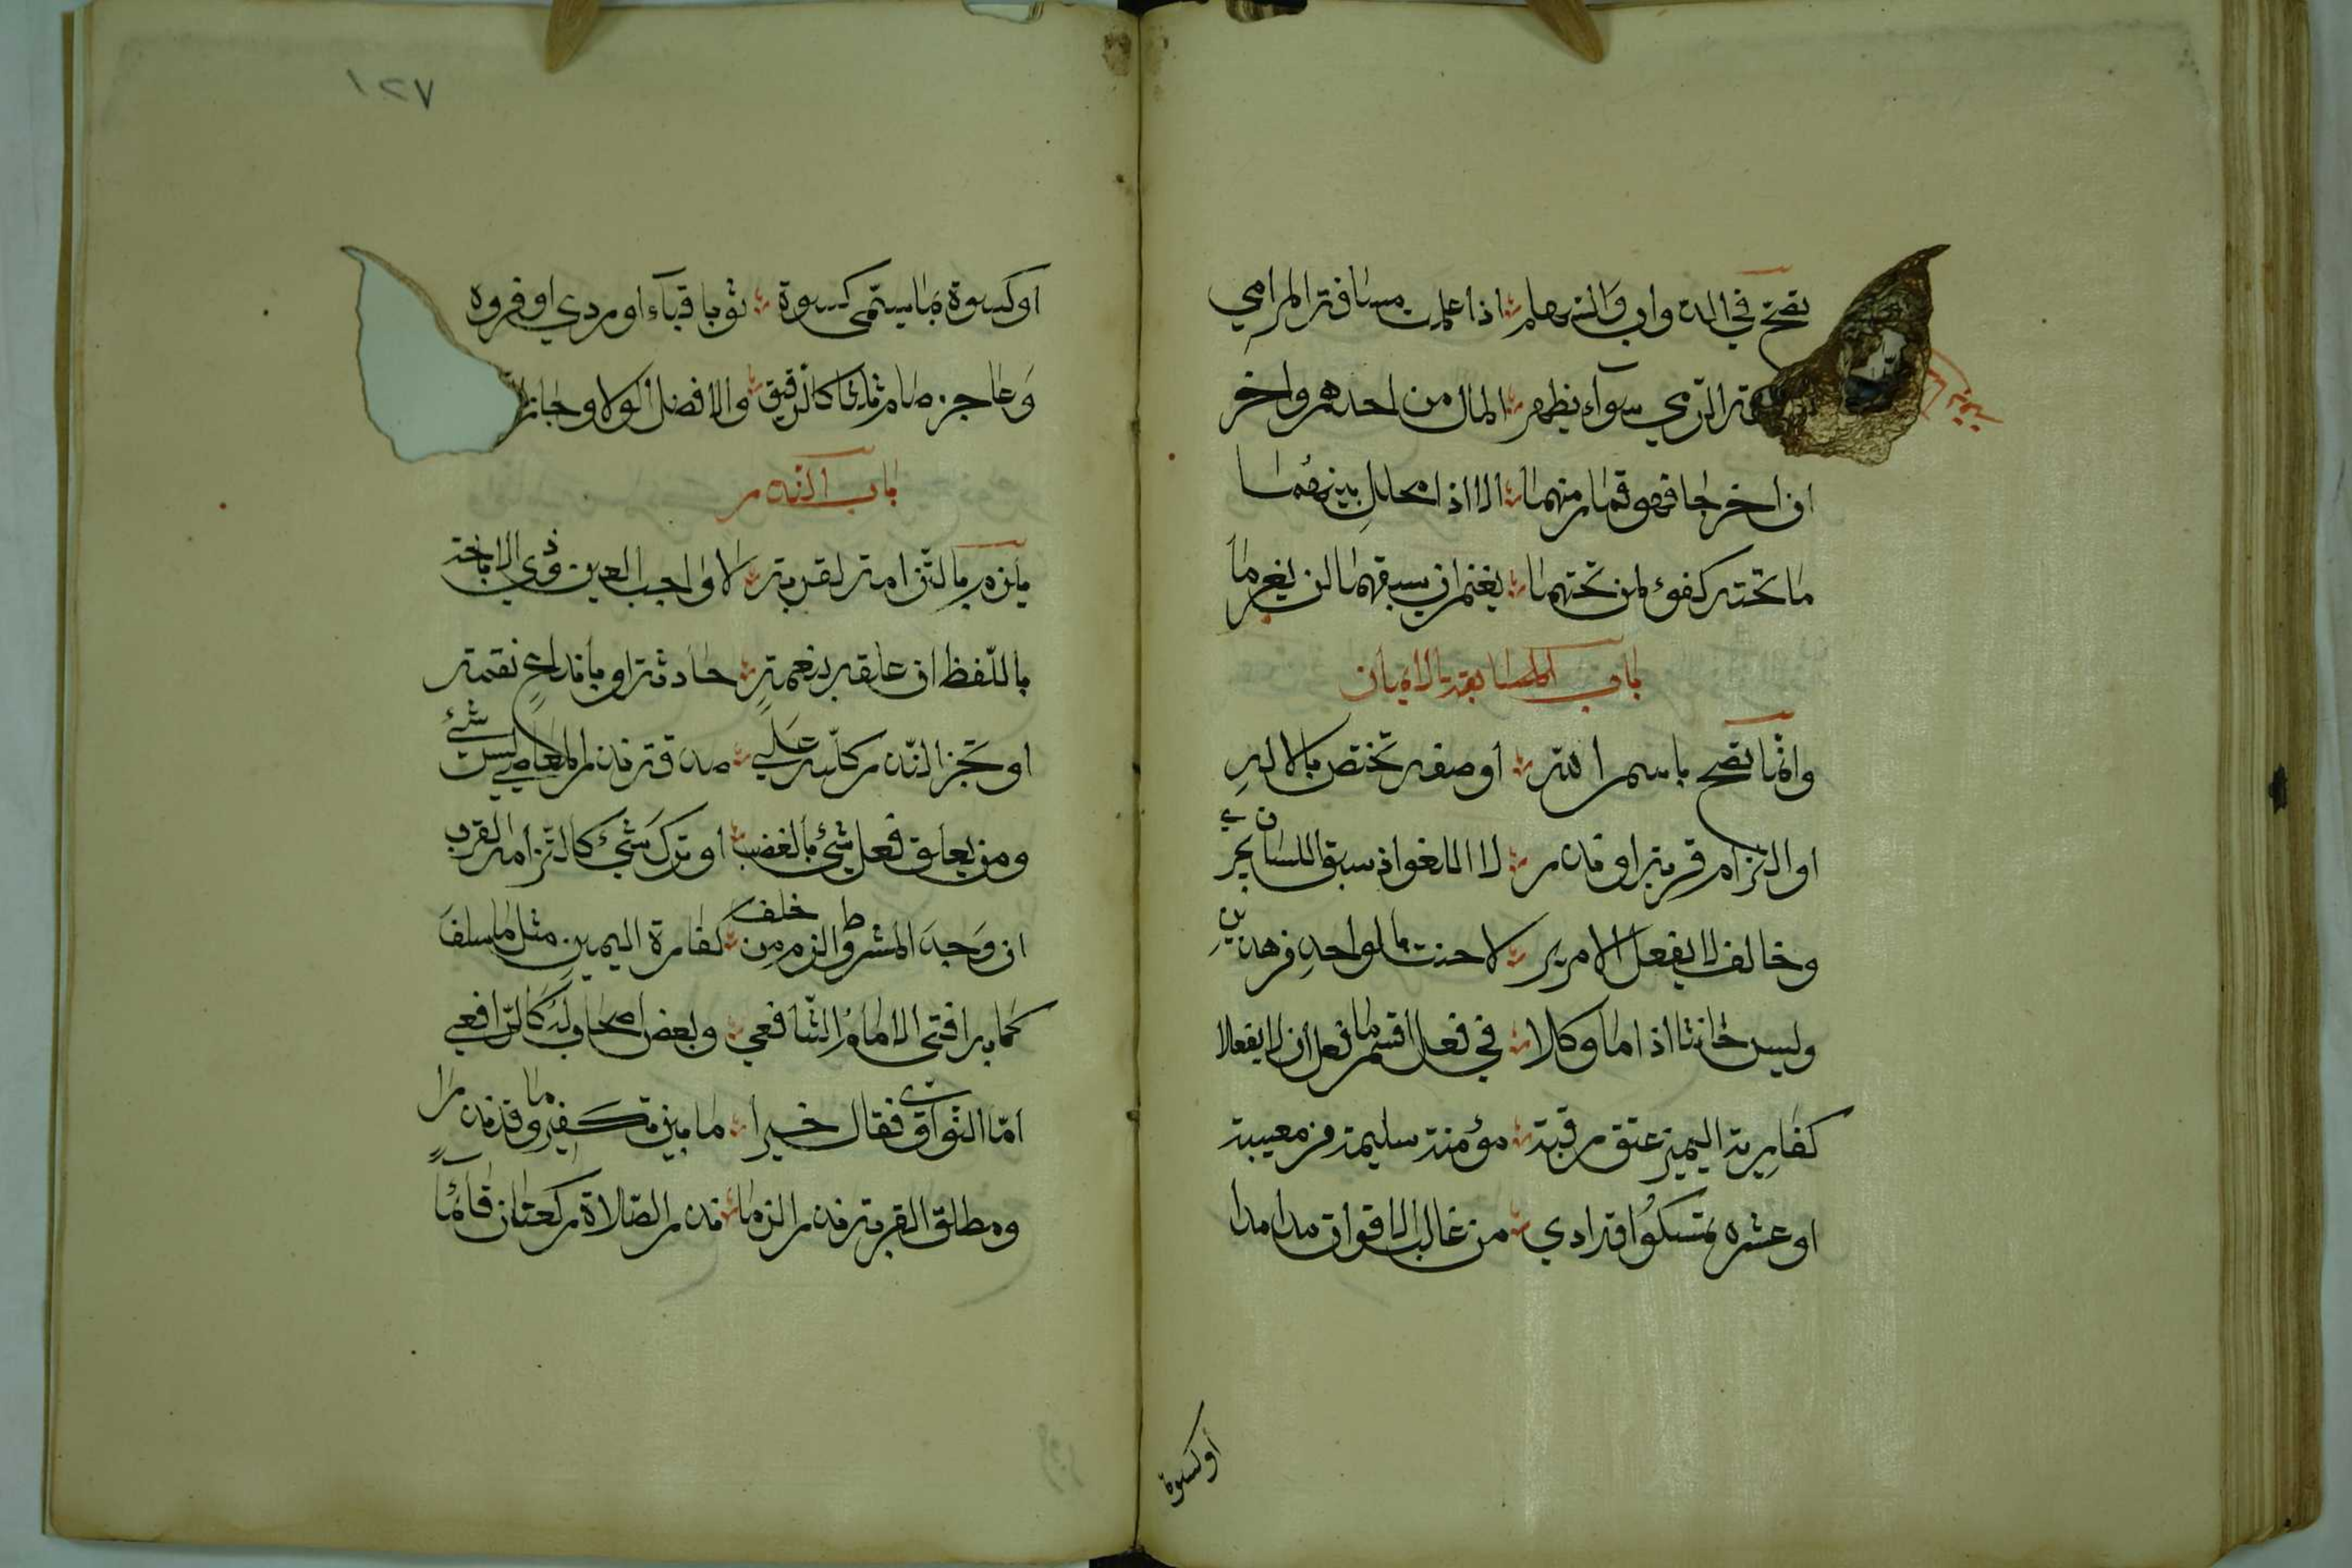 تصح في الدواب والسهام ؞ اذا علمت مسافة المرامي
الرمي سواء يظهر ؞ المال من احدهم واخر
ان اخرجا فهو قمار منهما ؞ الا اذا محلل بينهما
ما تحته كفؤ لمن تحتهما ؞ يغنم ان سبقهما لن يغرما
باب
وانما تصح باسم الله ؞ أو صفة تختص بالاله
او التزام قربة او نذر ؞ لا اللغو اذ سبق اللسان يجري
وخالف لا يفعل الامرين ؞ لا حنث بالواحد من هذين
وليس حانثا اذا ما وكلا ؞ في فعل ما اقسم ان لا يفعلا
كفارة اليمين عتق رقبة ؞ مؤمنة سليمة من معيبة
او عشرة تمسكوا قد ادي ؞ من غالب الاقوات مدا مدا
أو كسوة
١٢٧
او كسوة بما يسمى كسوة ؞ ثوبا قباء او ردي او فروه
وعاجز صام ثلاثا كالرقيق ؞ والافضل الولا وجاز
باب النذر
يلزم بالتزامه لقربة ؞ لا واجب العين وذي الاباحة
باللفظ ان علقه بنعمة ؞ حادثة او باندفاع نقمة
او نجز النذر كلله علي ؞ صدقة نذر المعاصي ليس شئ
ومن يعلق فعل شئ بالغضب ؞ او ترك شئ كالتزامه القرب
ان وجد المشروط الزم من خلف ؞ كفارة اليمين مثل ما سلف
كما به افتى الامام الشافعي ؞ وبعض اصحاب له كالرافعي
اما النواوي فقال خيرا ؞ ما بين تكفير وما قد نذرا
ومطلق القربة نذر الزما ؞ نذر الصلاة ركعتان قائما